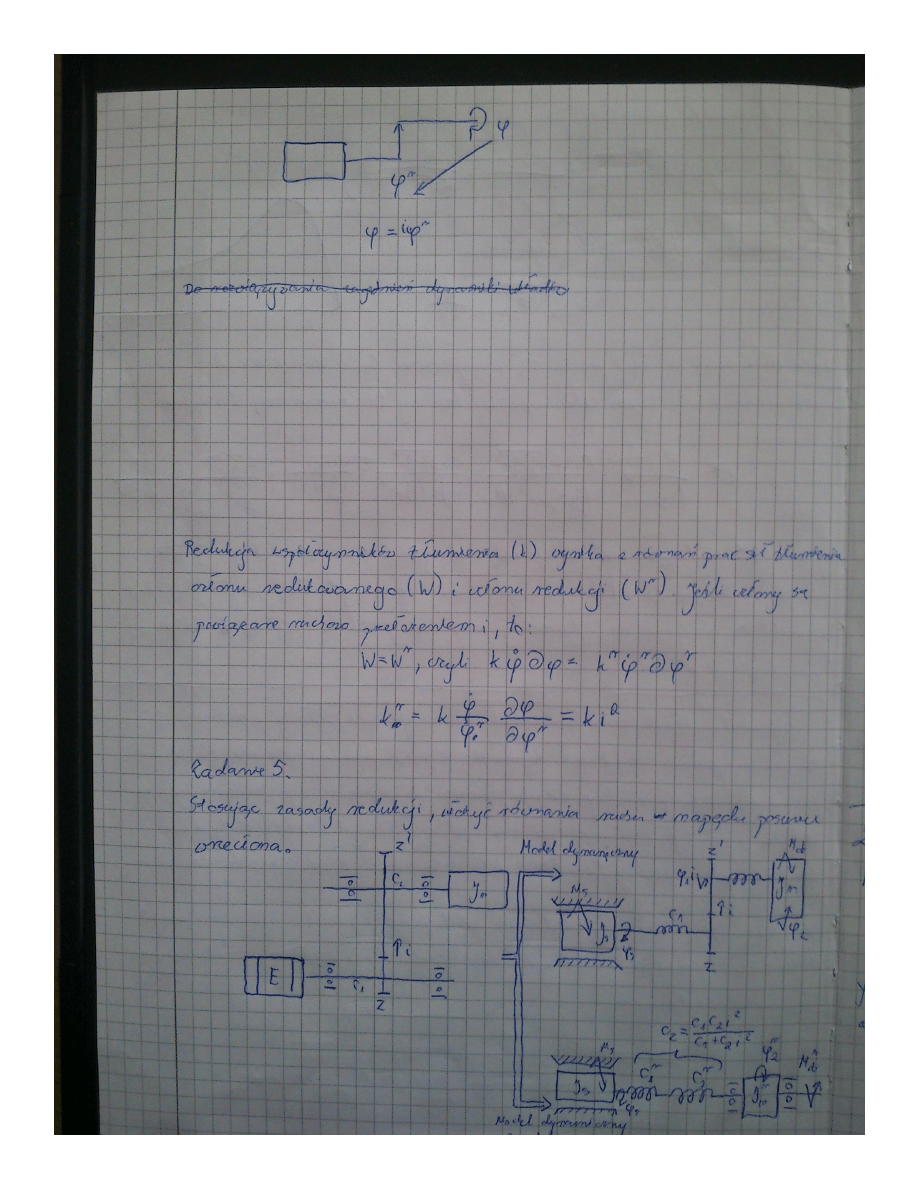 φ
φʳ
φ = iφʳ
Do rozwiązywania zagadnień dynamiki układu
Redukcja współczynników tłumienia (k) wynika z równań prac sił tłumienia
członu redukowanego (W) i członu redukcji (Wʳ). Jeśli człony są
powiązane ruchowo przełożeniem i, to:
W=Wʳ, czyli k φ̇ ∂φ = kʳ φ̇ʳ ∂φʳ
kʳ = k φ̇/φ̇ʳ ∂φ/∂φʳ = k i²
Zadanie 5.
Stosując zasady redukcji, ułożyć równania ruchu napędu posuwu
wrzeciona.
z'
Model dynamiczny
z'
Mₒb
C₂
Jₘ
φ₁i
Jₘ
Mₛ
C₁
↑i
Jₛ
φₛ
φ₂
↑i
E
C₁
z
z
C_z = C₁C₂i² / C₁+C₂i²
Mₛ
C₁ʳ
C₂ʳ
φ₂ʳ
Mₒbʳ
Jₛ
φₛ
Jₘʳ
Model dynamiczny